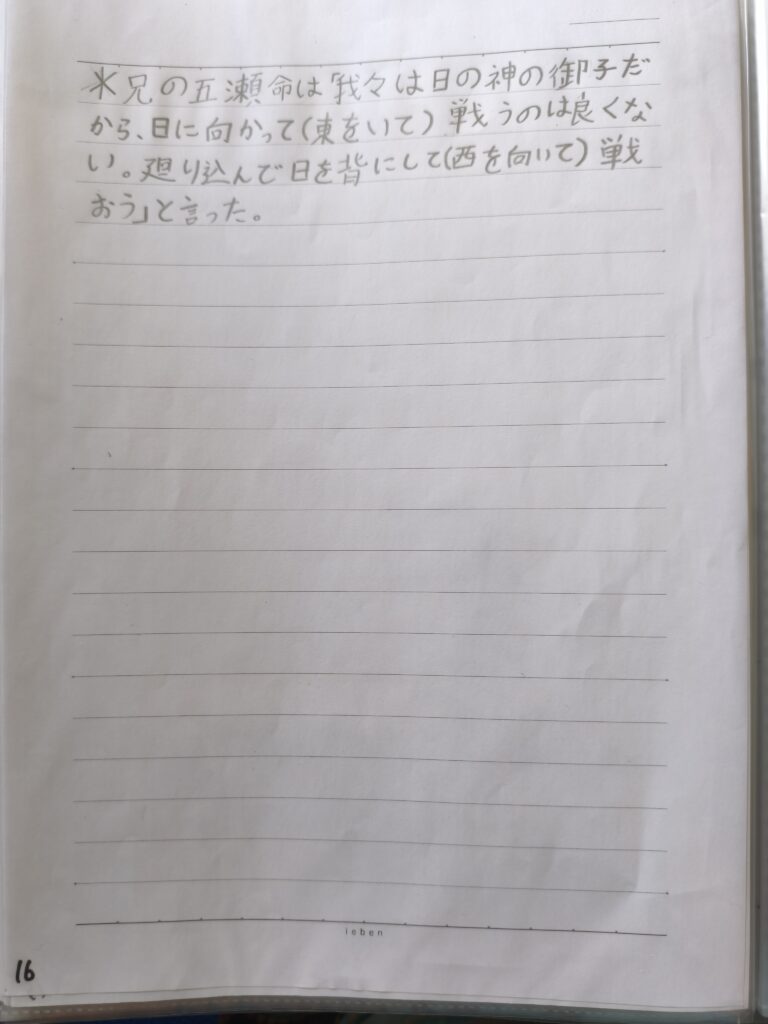 ※兄の五瀬命は「我々は日の神の御子だ
から、日に向かって(東をいて)戦うのは良くな
い。廻り込んで日を背にして(西を向いて)戦
おう」と言った。
ieben
16